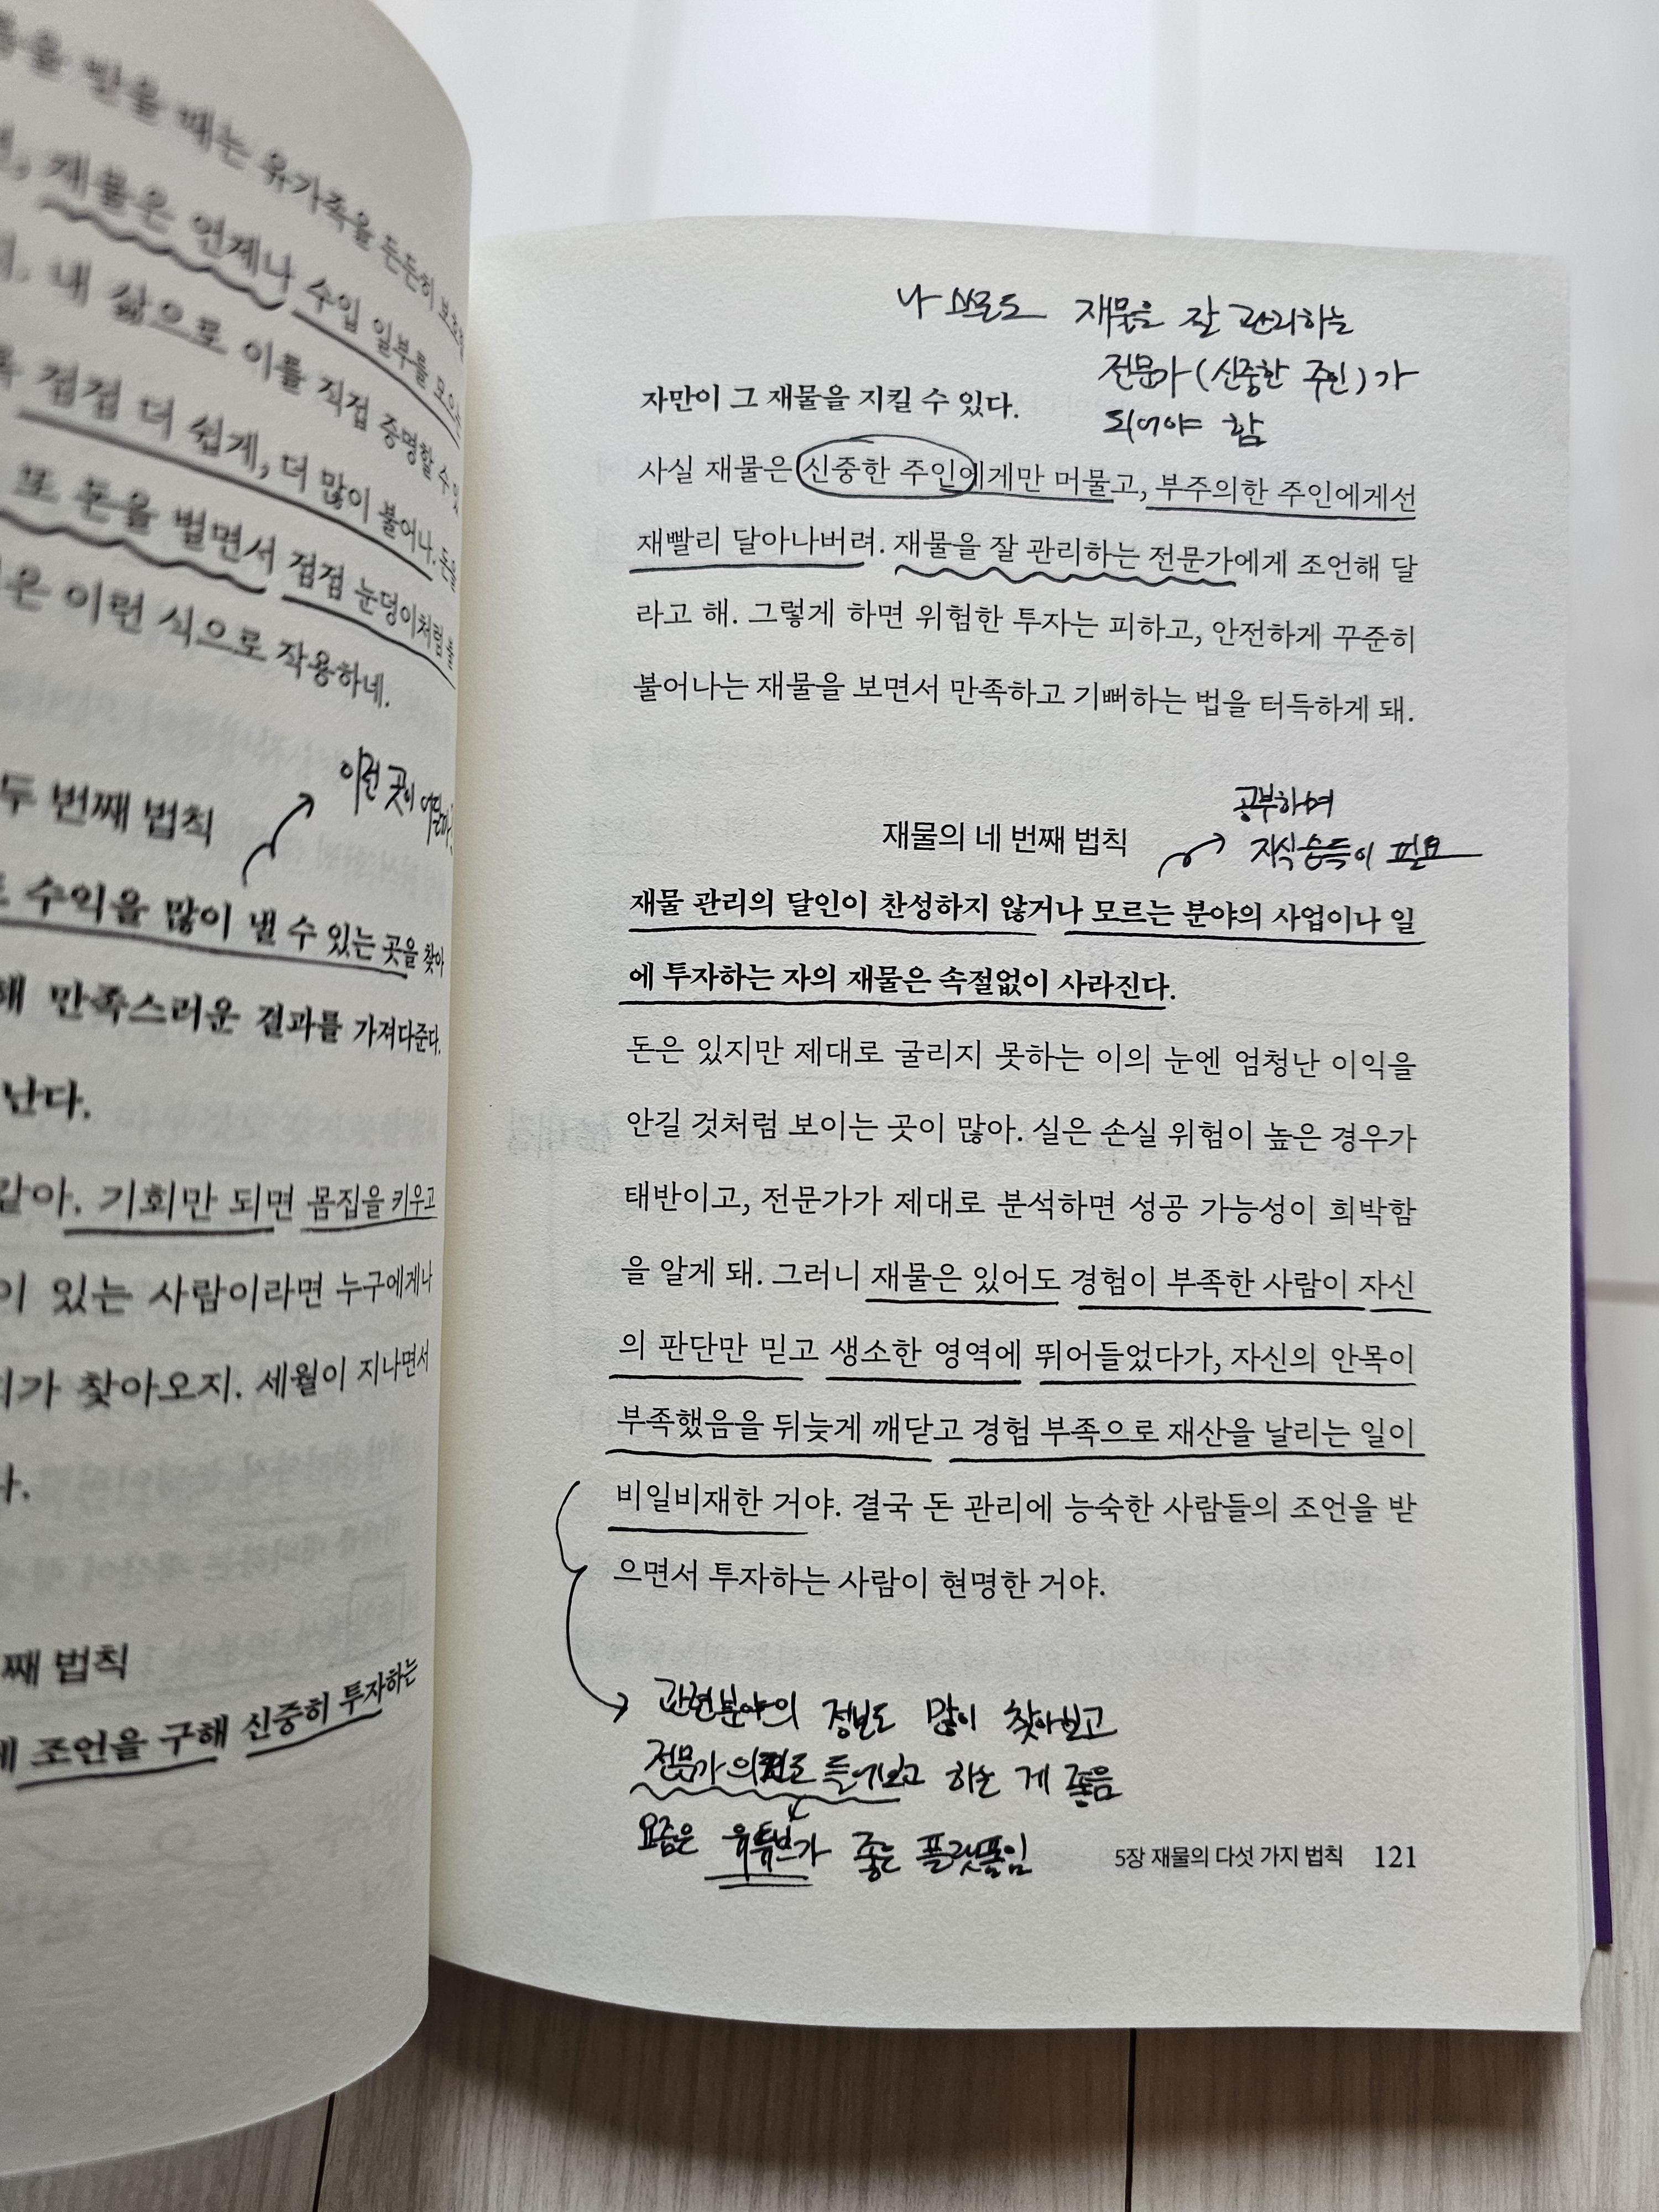 을 받을 때는 유가족을 든든히
재물은 언제나 수입 일부를 모으는
내 삶으로 이를 직접 증명할 수 있
점점 더 쉽게, 더 많이 불어나. 돈을
또 돈을 벌면서 점점 눈덩이처럼 불
은 이런 식으로 작용하네.
이런 곳이
두 번째 법칙
수익을 많이 낼 수 있는 곳을 찾아
해 만족스러운 결과를 가져다준다.
난다.
같아. 기회만 되면 몸집을 키우고
이 있는 사람이라면 누구에게나
가 찾아오지. 세월이 지나면서
다.
째 법칙
조언을 구해 신중히 투자하는
나 스스로도 재물을 잘 관리하는
전문가(신중한 주인)가
되어야 함
자만이 그 재물을 지킬 수 있다.
사실 재물은 신중한 주인에게만 머물고, 부주의한 주인에게선
재빨리 달아나버려. 재물을 잘 관리하는 전문가에게 조언해 달
라고 해. 그렇게 하면 위험한 투자는 피하고, 안전하게 꾸준히
불어나는 재물을 보면서 만족하고 기뻐하는 법을 터득하게 돼.
공부하여
지식습득이 필요
재물의 네 번째 법칙
재물 관리의 달인이 찬성하지 않거나 모르는 분야의 사업이나 일
에 투자하는 자의 재물은 속절없이 사라진다.
돈은 있지만 제대로 굴리지 못하는 이의 눈엔 엄청난 이익을
안길 것처럼 보이는 곳이 많아. 실은 손실 위험이 높은 경우가
태반이고, 전문가가 제대로 분석하면 성공 가능성이 희박함
을 알게 돼. 그러니 재물은 있어도 경험이 부족한 사람이 자신
의 판단만 믿고 생소한 영역에 뛰어들었다가, 자신의 안목이
부족했음을 뒤늦게 깨닫고 경험 부족으로 재산을 날리는 일이
비일비재한 거야. 결국 돈 관리에 능숙한 사람들의 조언을 받
으면서 투자하는 사람이 현명한 거야.
관련분야의 정보도 많이 찾아보고
전문가 의견도 들어보고 하는 게 좋음
요즘은 유튜브가 좋은 플랫폼임
5장 재물의 다섯 가지 법칙 121